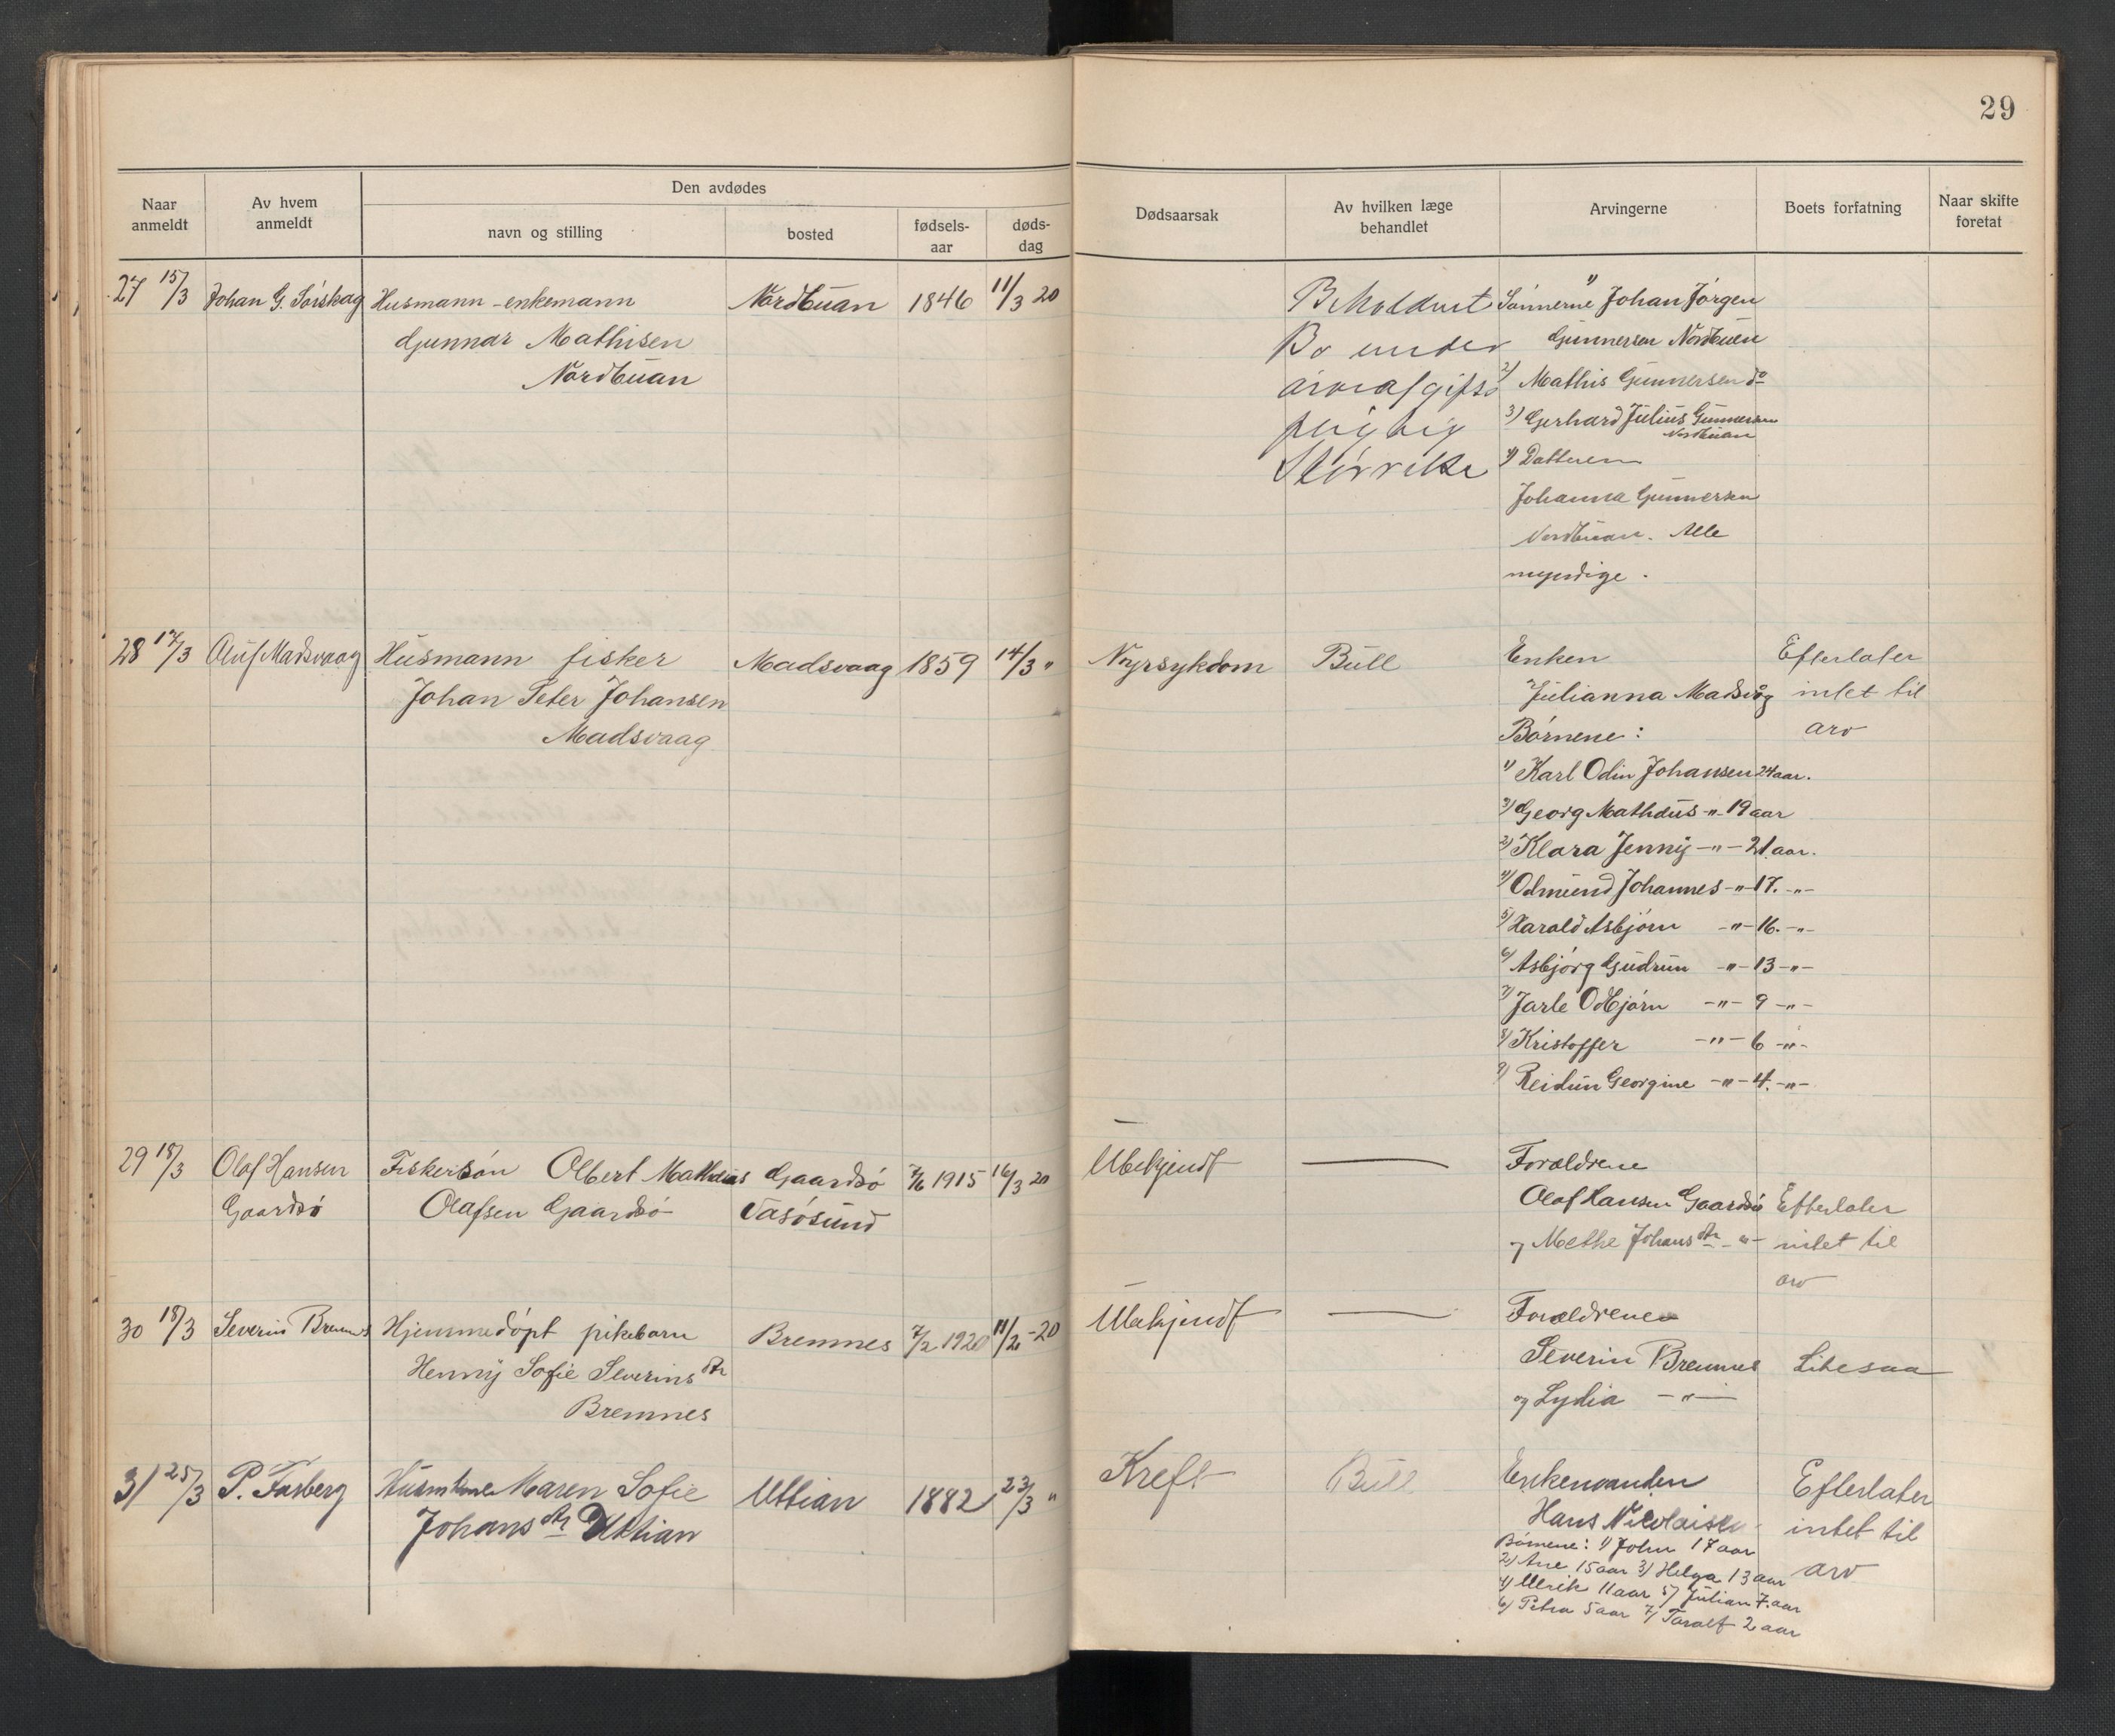 29
Naar anmeldt
Av hvem anmeldt
Den avdødes
navn og stilling
bosted
fødsels-aar
døds-dag
Dødsaarsak
Av hvilken læge behandlet
Arvingerne
Boets forfatning
Naar skifte foretat
27 15/3 Johan G. Sørskag Husmann - enkemann Nordbuan 1846 11/3 20
Gunnar Mathisen
Nordbuan
Beholdent
Bo under
arveafgifts
pligtig
Størrelse
1) Sønnerne Johan Jørgen
Gunnersen Nordbuen
2) Mathis Gunnersen do
3) Gerhard Julius Gunnersen
Nordbuan
4) Datteren
Johanna Gunnersen
Nordbuan. Alle
myndige.
28 17/3 Oluf Madsvaag Husmann fisker Madsvaag 1859 14/3 "
Johan Peter Johansen
Madsvaag
Nyrsykdom Bull Enken Efterlater
Julianna Madsvåg intet til
Børnene: arv
1) Karl Odin Johansen 24 aar.
3) Georg Mathæus -"- 19 aar
2) Klara Jenny -"- 21 aar.
4) Odmund Johannes -"- 17. -"-
5) Harald Asbjørn -"- 16. -"-
6) Asbjørg Gudrun -"- 13 -"-
7) Jarle Odbjørn -"- 9 -"-
8) Kristoffer -"- 6 -"-
9) Reidun Georgine -"- 4. -"-
29 18/3 Olaf Hansen Fiskersøn Olbert Mathæus Gaardsø 7/6 1915 16/3 20
Gaardsø Olafsen Gaardsø Vasøsund
Ubekjendt — Forældrene
Olaf Hansen Gaardsø Efterlater
og Methe Johansdtr -"- intet til
arv
30 18/3 Severin Bremnes Hjemmedøpt pikebarn Bremnes 7/2 1920 11/2 -20
Henny Sofie Severinsdtr
Bremnes
Ubekjendt — Forældrene
Severin Bremnes Likesaa
og Lydia -"-
31 25/3 P. Farberg Maren Sofie Uttian 1882 23/3 "
Johansdtr Uttian
Kreft Bull Enkemanden Efterlater
Hans Nikolaisen intet til
Børnene: 1) John 17 aar
2) Ane 15 aar 3) Helga 13 aar arv
4) Ulrik 11 aar 5) Julian 7. aar
6) Petra 5 aar 7) Toralf 2 aar